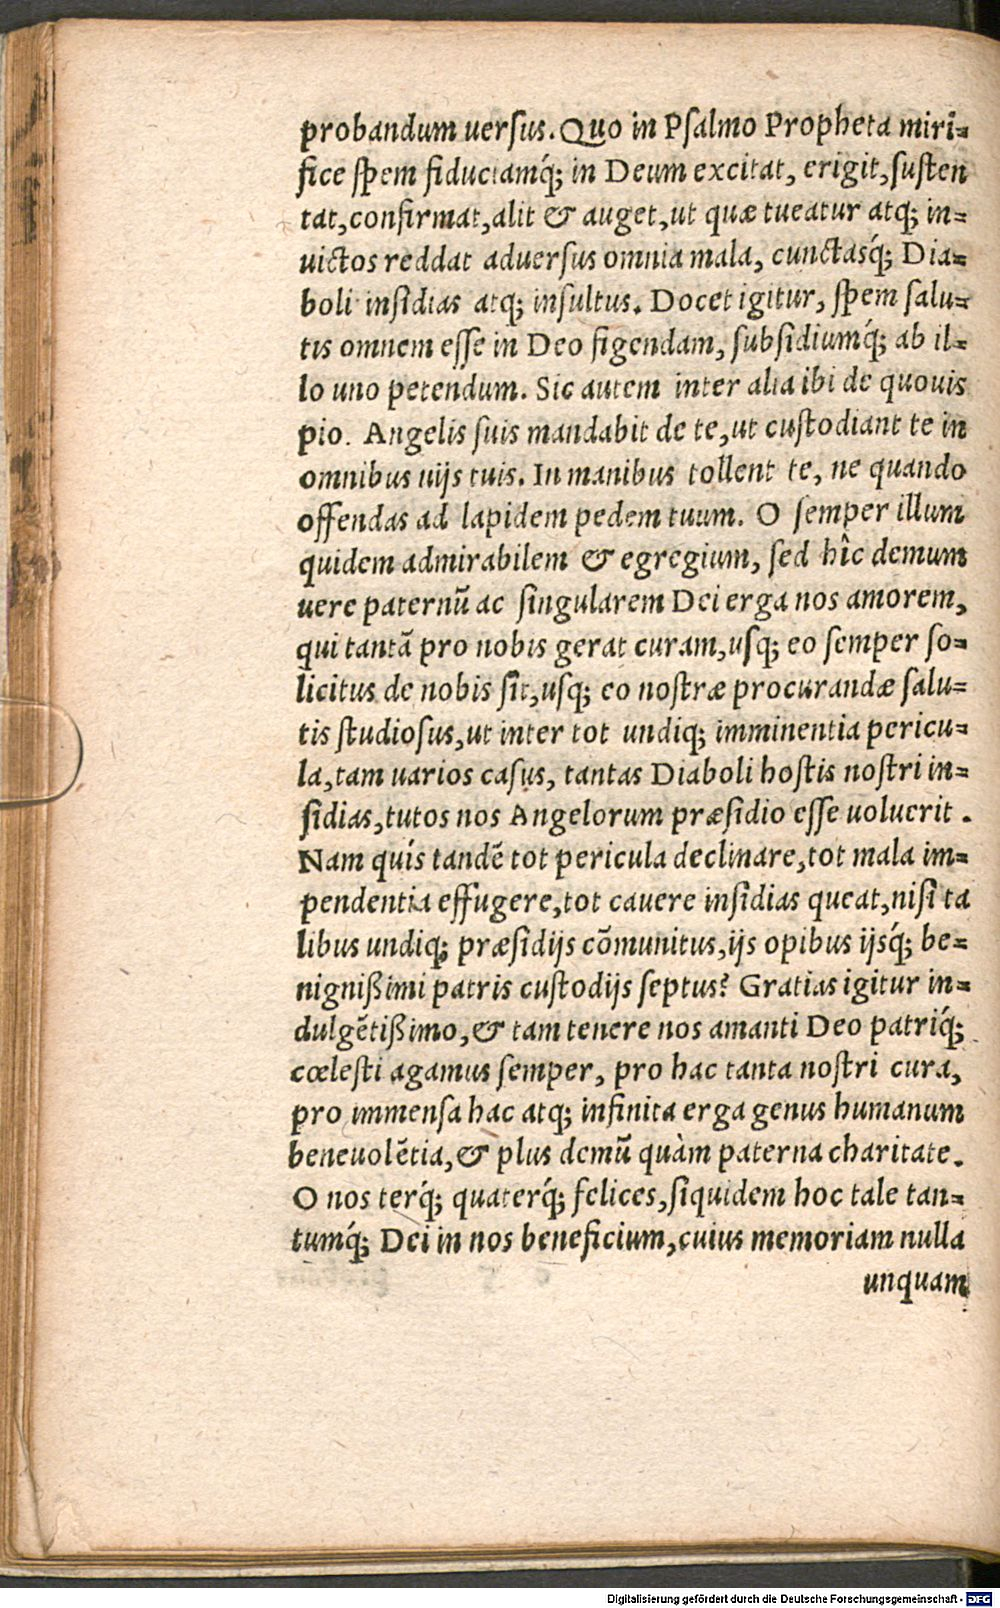 probandum uersus. Quo in Psalmo Propheta miri-
fice spem fiduciamq́; in Deum excitat, erigit, susten
tat, confirmat, alit & auget, ut quæ tueatur atq; in-
uictos reddat aduersus omnia mala, cunctasq́; Dia-
boli insidias atq; insultus. Docet igitur, spem salu-
tis omnem esse in Deo figendam, subsidiumq́; ab il-
lo uno petendum. Sic autem inter alia ibi de quouis
pio. Angelis suis mandabit de te, ut custodiant te in
omnibus uijs tuis. In manibus tollent te, ne quando
offendas ad lapidem pedem tuum. O semper illum
quidem admirabilem & egregium, sed hîc demum
uere paternũ ac singularem Dei erga nos amorem,
qui tantã pro nobis gerat curam, usq; eo semper so-
licitus de nobis sit, usq; eo nostræ procurandæ salu-
tis studiosus, ut inter tot undiq; imminentia pericu-
la, tam uarios casus, tantas Diaboli hostis nostri in-
sidias, tutos nos Angelorum præsidio esse uoluerit.
Nam quis tandẽ tot pericula declinare, tot mala im-
pendentia effugere, tot cauere insidias queat, nisi ta
libus undiq; præsidijs cõmunitus, ijs opibus ijsq́; be-
nignißimi patris custodijs septus? Gratias igitur in-
dulgẽtißimo, & tam tenere nos amanti Deo patriq́;
cœlesti agamus semper, pro hac tanta nostri cura,
pro immensa hac atq; infinita erga genus humanum
beneuolẽtia, & plus demũ quàm paterna charitate.
O nos terq́; quaterq́; felices, siquidem hoc tale tan-
tumq́; Dei in nos beneficium, cuius memoriam nulla
unquam
Digitalisierung gefördert durch die Deutsche Forschungsgemeinschaft - DFG